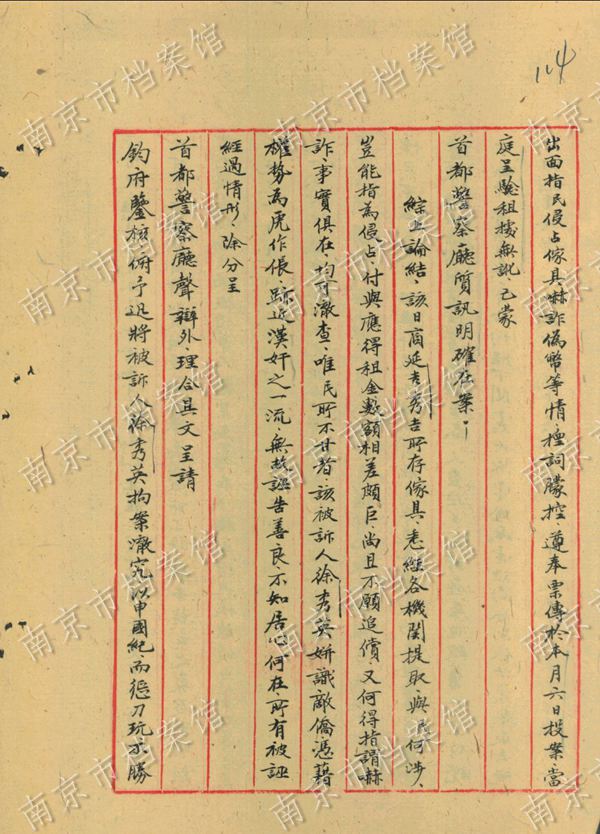 114
出面指民侵占傢具嚇詐偽幣等情，種詞朦控，遵奉票傳於本月六日投案，當
庭呈驗租據無訛，已蒙
首都警察廳質訊明確在案。
綜上論結，該日商延吉秀吉所存傢具，悉經各機關提取，與民何涉，
豈能指為侵占，付與應得租金數額相差頗巨，尚且不願追償，又何得指謂嚇
詐，事實俱在，均可澈查，唯民所不甘者，該被訴人徐秀英姘識敵僑，憑藉
雄勢為虎作倀，跡近漢奸之一流，無故誣告善良，不知居心何在，所有被誣
經過情形，除分呈
首都警察廳聲辯外，理合具文呈請
鈞府鑒核，俯予迅將被訴人徐秀英拘案澈究，以申國紀，而懲刁玩，不勝
南京市档案馆